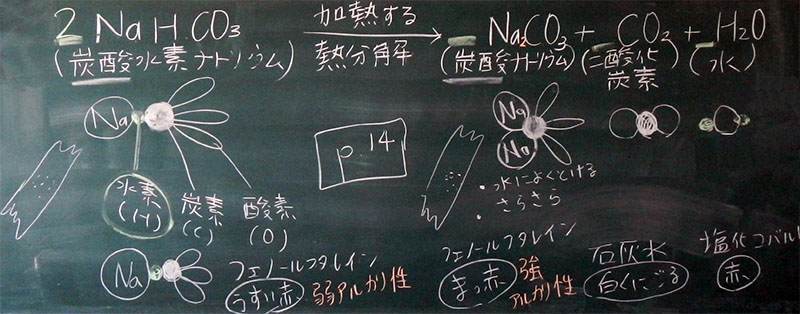 2 NaHCO3 加熱する 熱分解 → Na2CO3 + CO2 + H2O
(炭酸水素ナトリウム) (炭酸ナトリウム) (二酸化炭素) (水)
Na
水素
(H)
炭素
(C)
酸素
(O)
p.14
Na
Na
・水によくとける
・さらさら
Na
フェノールフタレイン
うすい赤 弱アルカリ性
フェノールフタレイン
まっ赤 強アルカリ性
石灰水
白くにごる
塩化コバルト
赤